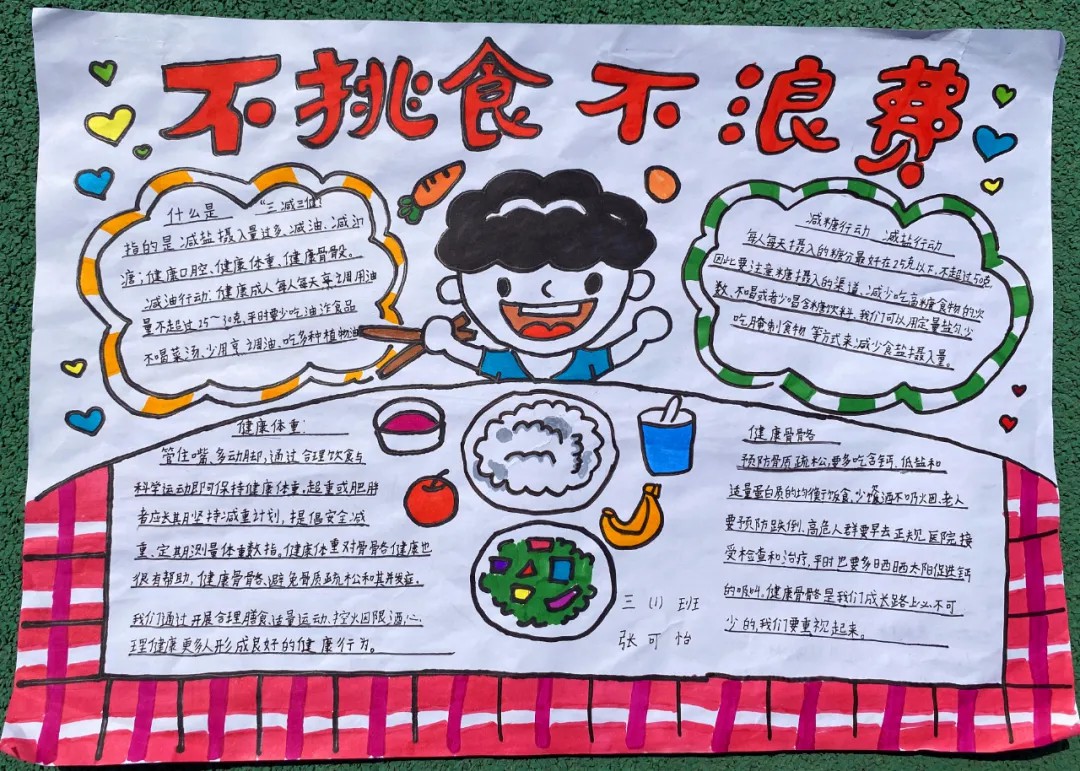 不挑食 不浪费
什么是 “三减三健”
指的是 减盐摄入量过多、减油、减
糖,健康口腔、健康体重、健康骨骼。
减油行动:健康成人每人每天烹调用油
量不超过25~30克,平时要少吃油炸食品
不喝菜汤,少用烹调油、吃多种植物油
减糖行动 减盐行动
每人每天摄入的糖分最好在25克以下,不超过50克
因此要注意糖摄入的渠道,减少吃高糖食物的次
数、不喝或者少喝含糖饮料,我们可以用定量盐勺少
吃腌制食物 等方式来减少食盐摄入量。
健康体重:
管住嘴,多动脚,通过合理饮食与
科学运动即可保持健康体重,超重或肥胖
者应长期坚持减重计划,提倡安全减
重、定期测量体重数指,健康体重对骨骼健康也
很有帮助,健康骨骼、避免骨质疏松和其并发症.
我们通过开展合理膳食,适量运动,控火回限酒,心
理健康更多人形成良好的健康行为。
健康骨骼
预防骨质疏松,要多吃含钙、低盐和
适量蛋白质的均衡饭食,少喝酒不吸火因、老人
要预防跌倒,高危人群要早去正规医院接
受检查和治疗,平时也要多日西晒太阳促进钙
的吸收,健康骨骼是我们成长路上必不可
少的,我们要重视起来。
三(1)班
张可怡